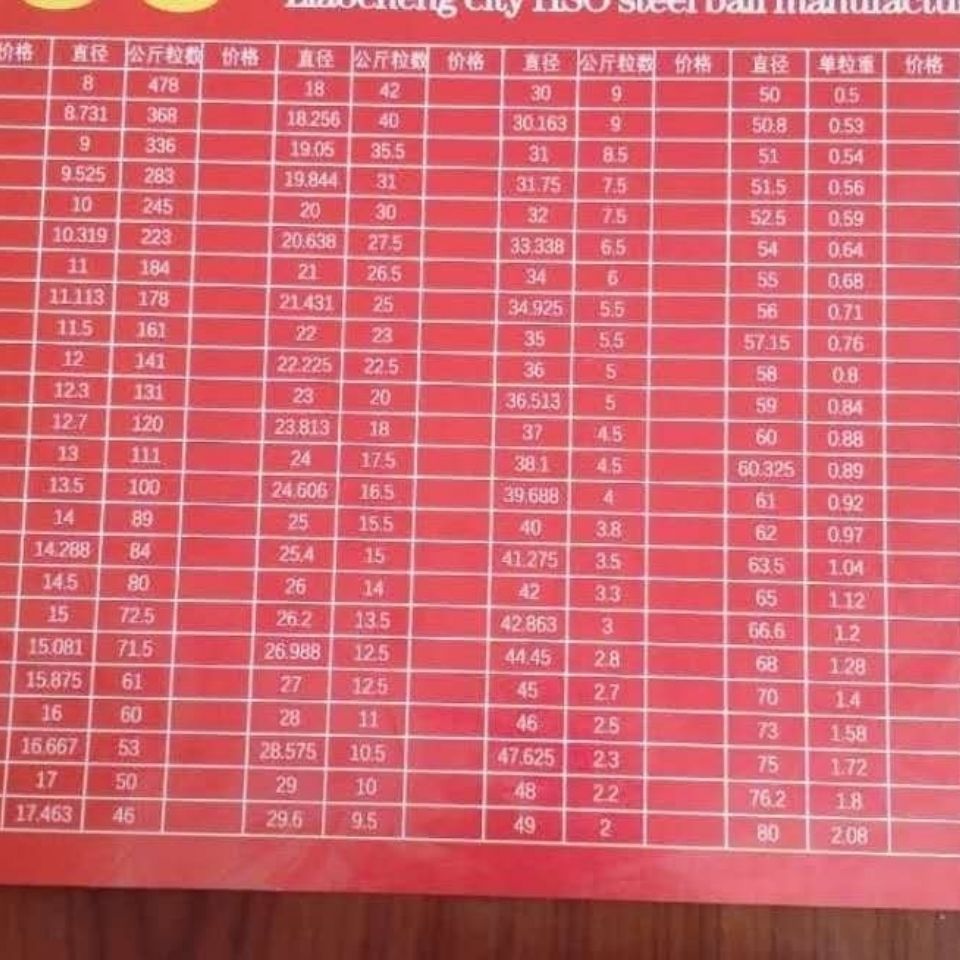 Liaocheng city HSO steel ball manufactur
价格 直径 公斤粒数 价格 直径 公斤粒数 价格 直径 公斤粒数 价格 直径 单粒重 价格
8 478 18 42 30 9 50 0.5
8.731 368 18.256 40 30.163 9 50.8 0.53
9 336 19.05 35.5 31 8.5 51 0.54
9.525 283 19.844 31 31.75 7.5 51.5 0.56
10 245 20 30 32 7.5 52.5 0.59
10.319 223 20.638 27.5 33.338 6.5 54 0.64
11 184 21 26.5 34 6 55 0.68
11.113 178 21.431 25 34.925 5.5 56 0.71
11.5 161 22 23 35 5.5 57.15 0.76
12 141 22.225 22.5 36 5 58 0.8
12.3 131 23 20 36.513 5 59 0.84
12.7 120 23.813 18 37 4.5 60 0.88
13 111 24 17.5 38.1 4.5 60.325 0.89
13.5 100 24.606 16.5 39.688 4 61 0.92
14 89 25 15.5 40 3.8 62 0.97
14.288 84 25.4 15 41.275 3.5 63.5 1.04
14.5 80 26 14 42 3.3 65 1.12
15 72.5 26.2 13.5 42.863 3 66.6 1.2
15.081 71.5 26.988 12.5 44.45 2.8 68 1.28
15.875 61 27 12.5 45 2.7 70 1.4
16 60 28 11 46 2.5 73 1.58
16.667 53 28.575 10.5 47.625 2.3 75 1.72
17 50 29 10 48 2.2 76.2 1.8
17.463 46 29.6 9.5 49 2 80 2.08